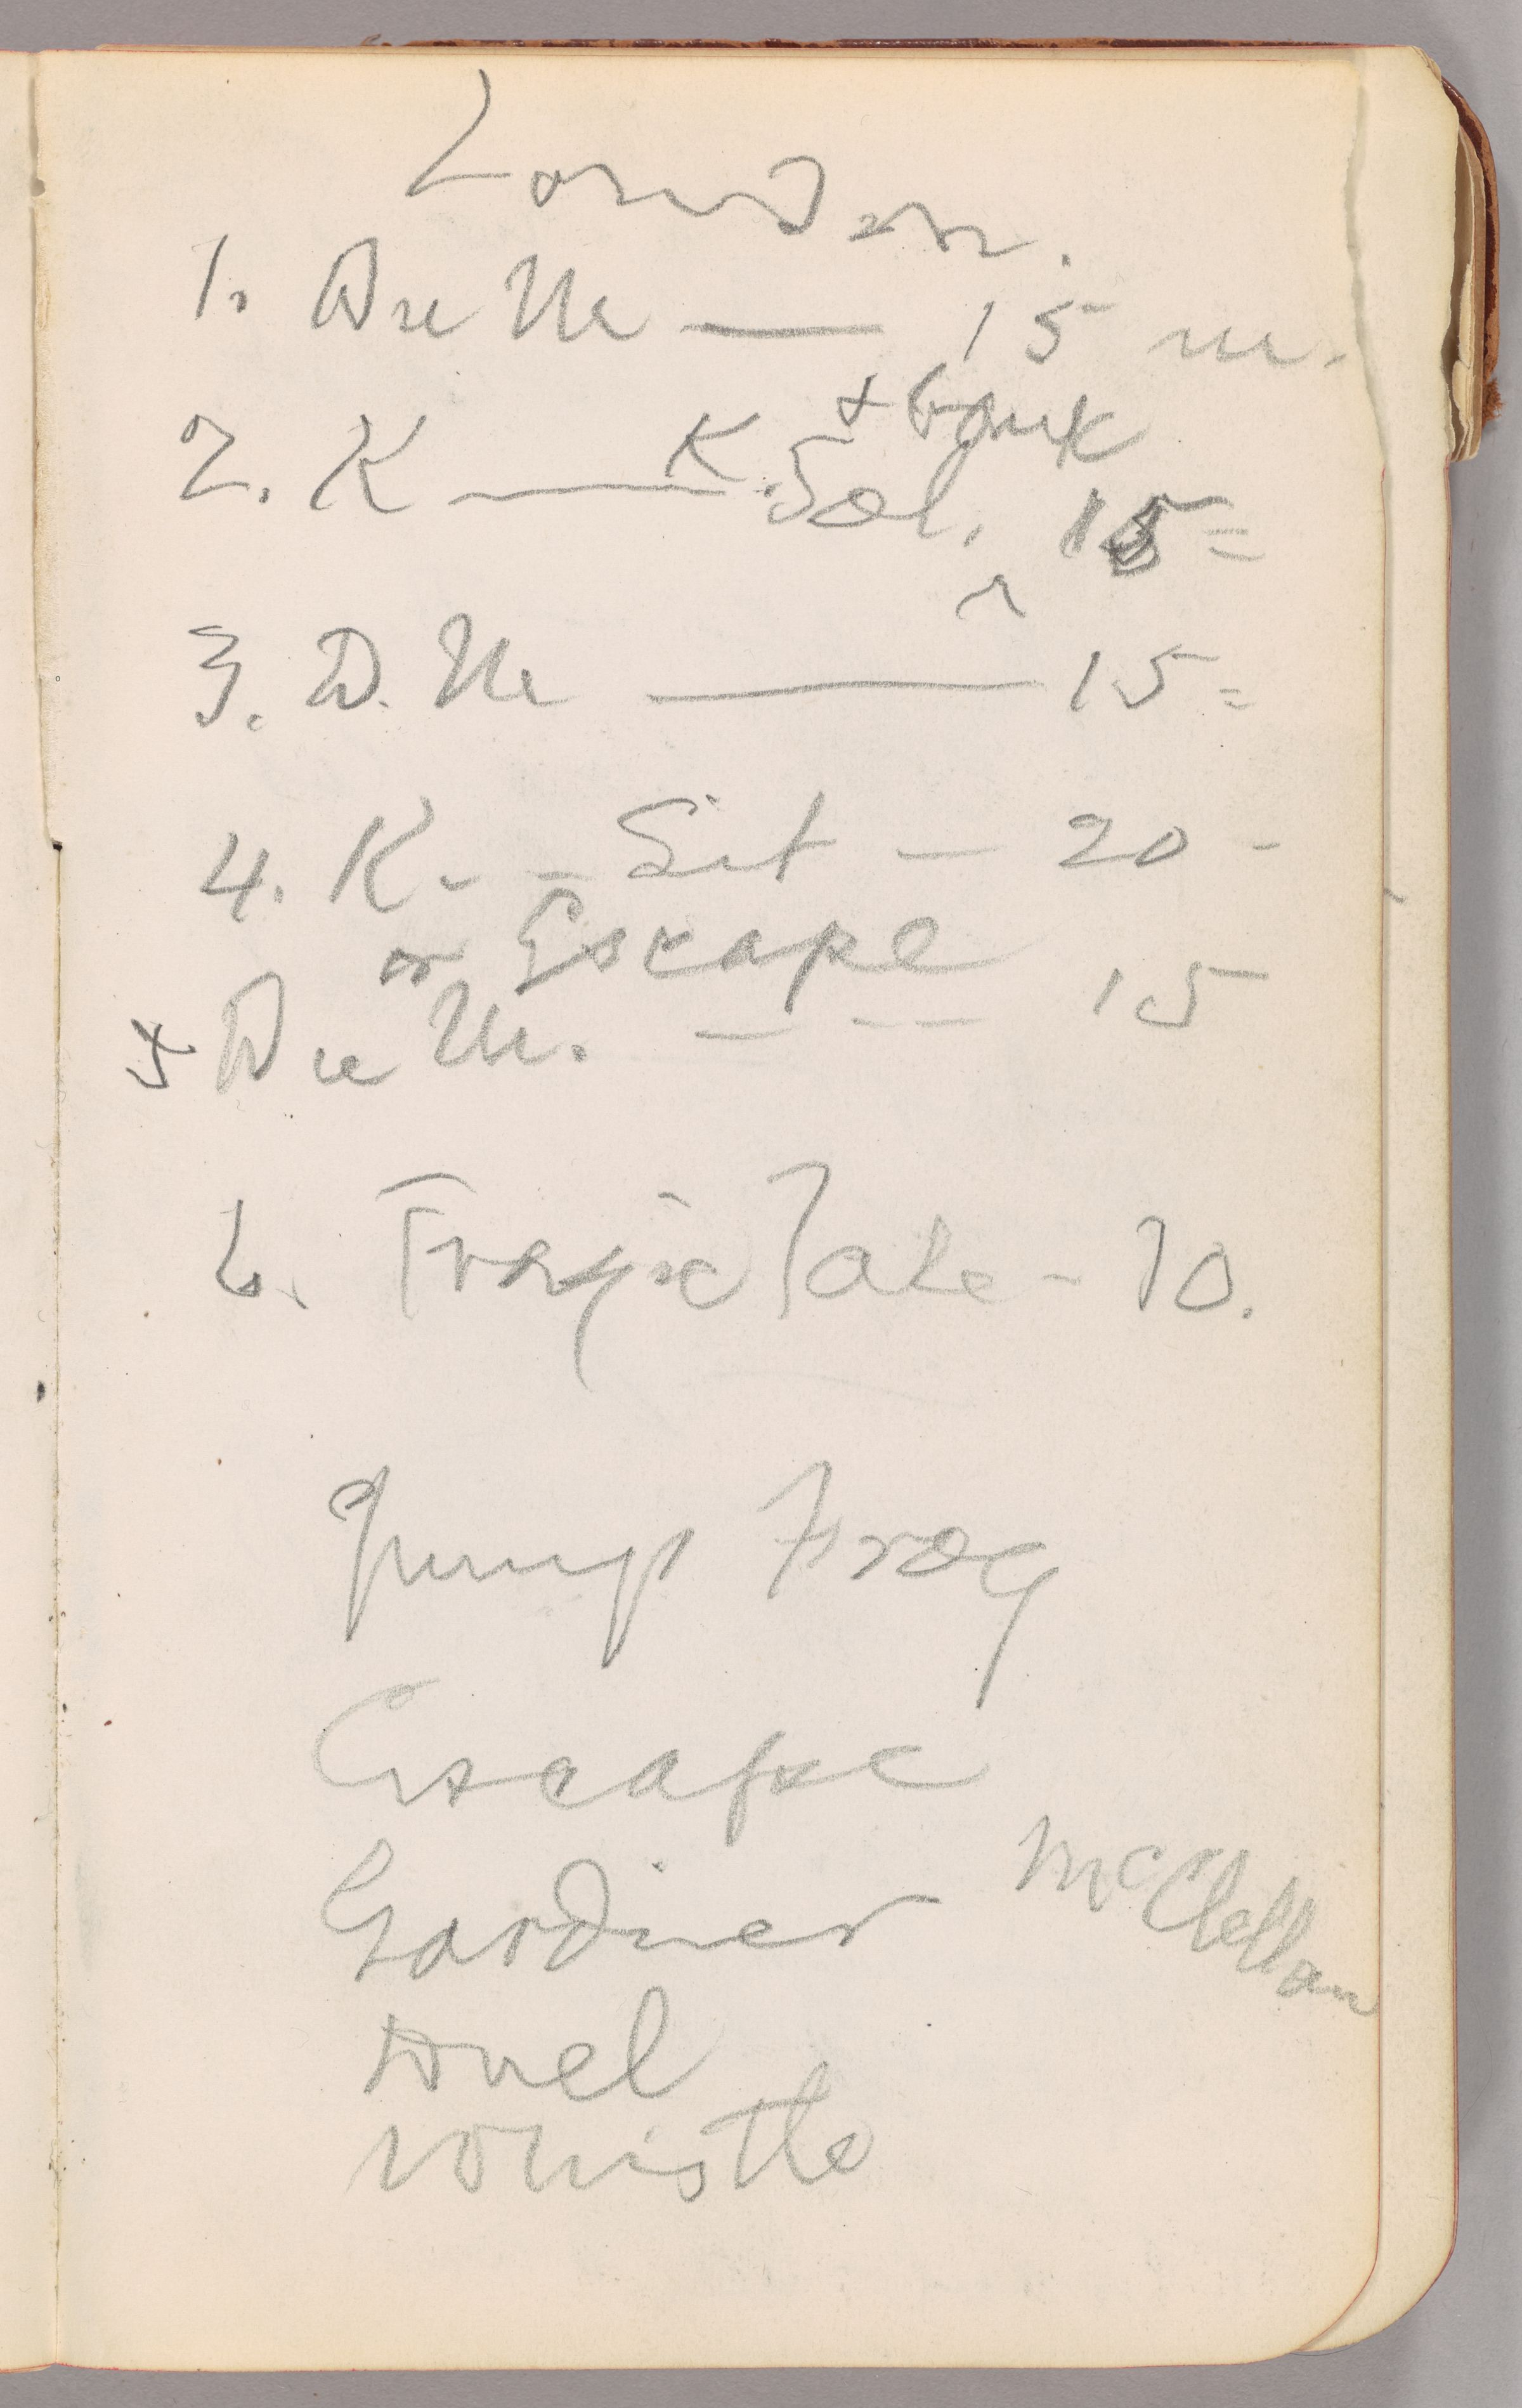 London.
1. Du M — 15 m.
+ bank
2. K — K. Sol. 15 =
^
3. D. M — 15 =
4. K - - Sit — 20 -
or Escape
5 Du M. — - — 15
6. Tragic Tale - 10.
Jump Frog
Escape
Gardiner McClellan
Duel
Whistle